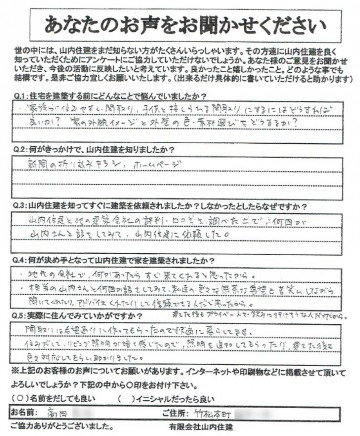 あなたのお声をお聞かせください
世の中には、山内住建をまだ知らない方がたくさんいらっしゃいます。その方達に山内住建を良く
知っていただくためにアンケートにご協力していただけないでしょうか。あなた様のご意見をお聞かせ
いただき、今後の活動に反映したいと考えています。良かったこと嬉しかったこと。どのような事でも
結構です。是非ご協力宜しくお願いいたします。(出来るだけ具体的に書いていただけると助かります)
Q.1:住宅を建築する前にどんなことで悩んでいましたか?
家族が住みやすい間取り、子供と接しられる間取りにするにはどうすれば
良いか? 家の外観イメージと外壁の色・素材選びをどうするか?
Q.2:何がきっかけで、山内住建を知りましたか?
新聞の折り込みチラシ、ホームページ
Q.3:山内住建を知ってすぐに建築を依頼されましたか?しなかったとしたらなぜですか?
山内住建と他の建築会社の評判・口コミを調べた上で、何回か
山内さんと話をしてみて、山内住建に依頼した。
Q.4:何が決め手となって山内住建で家を建築されましたか?
・地元の会社で、何かあったらすぐ来てくれると思ったから。
・担当の山内さんと何回か話をしてみて、私達の
聞いてくれたり、アドバイスしてくれたりして信頼できる人だと思ったから。
Q.5:実際に住んでみていかがですか?
間取りは希望通りに作ってもらったので快適に暮らしてます。
住みだしてリビング照明が暗く感じたので、照明を追加してもらったり、建てた後も
色々対応してもらい助かりました。
※上記のお客様のお声についてお願いがあります。インターネットや印刷物などに掲載させて頂いて
よろしいでしょうか? 下記の中から〇印をお付け下さい。
(〇)名前をだしても良い ( )イニシャルだったら良い
お名前: 高田 ご住所: 竹松本町
ご協力ありがとうございました。 有限会社山内住建